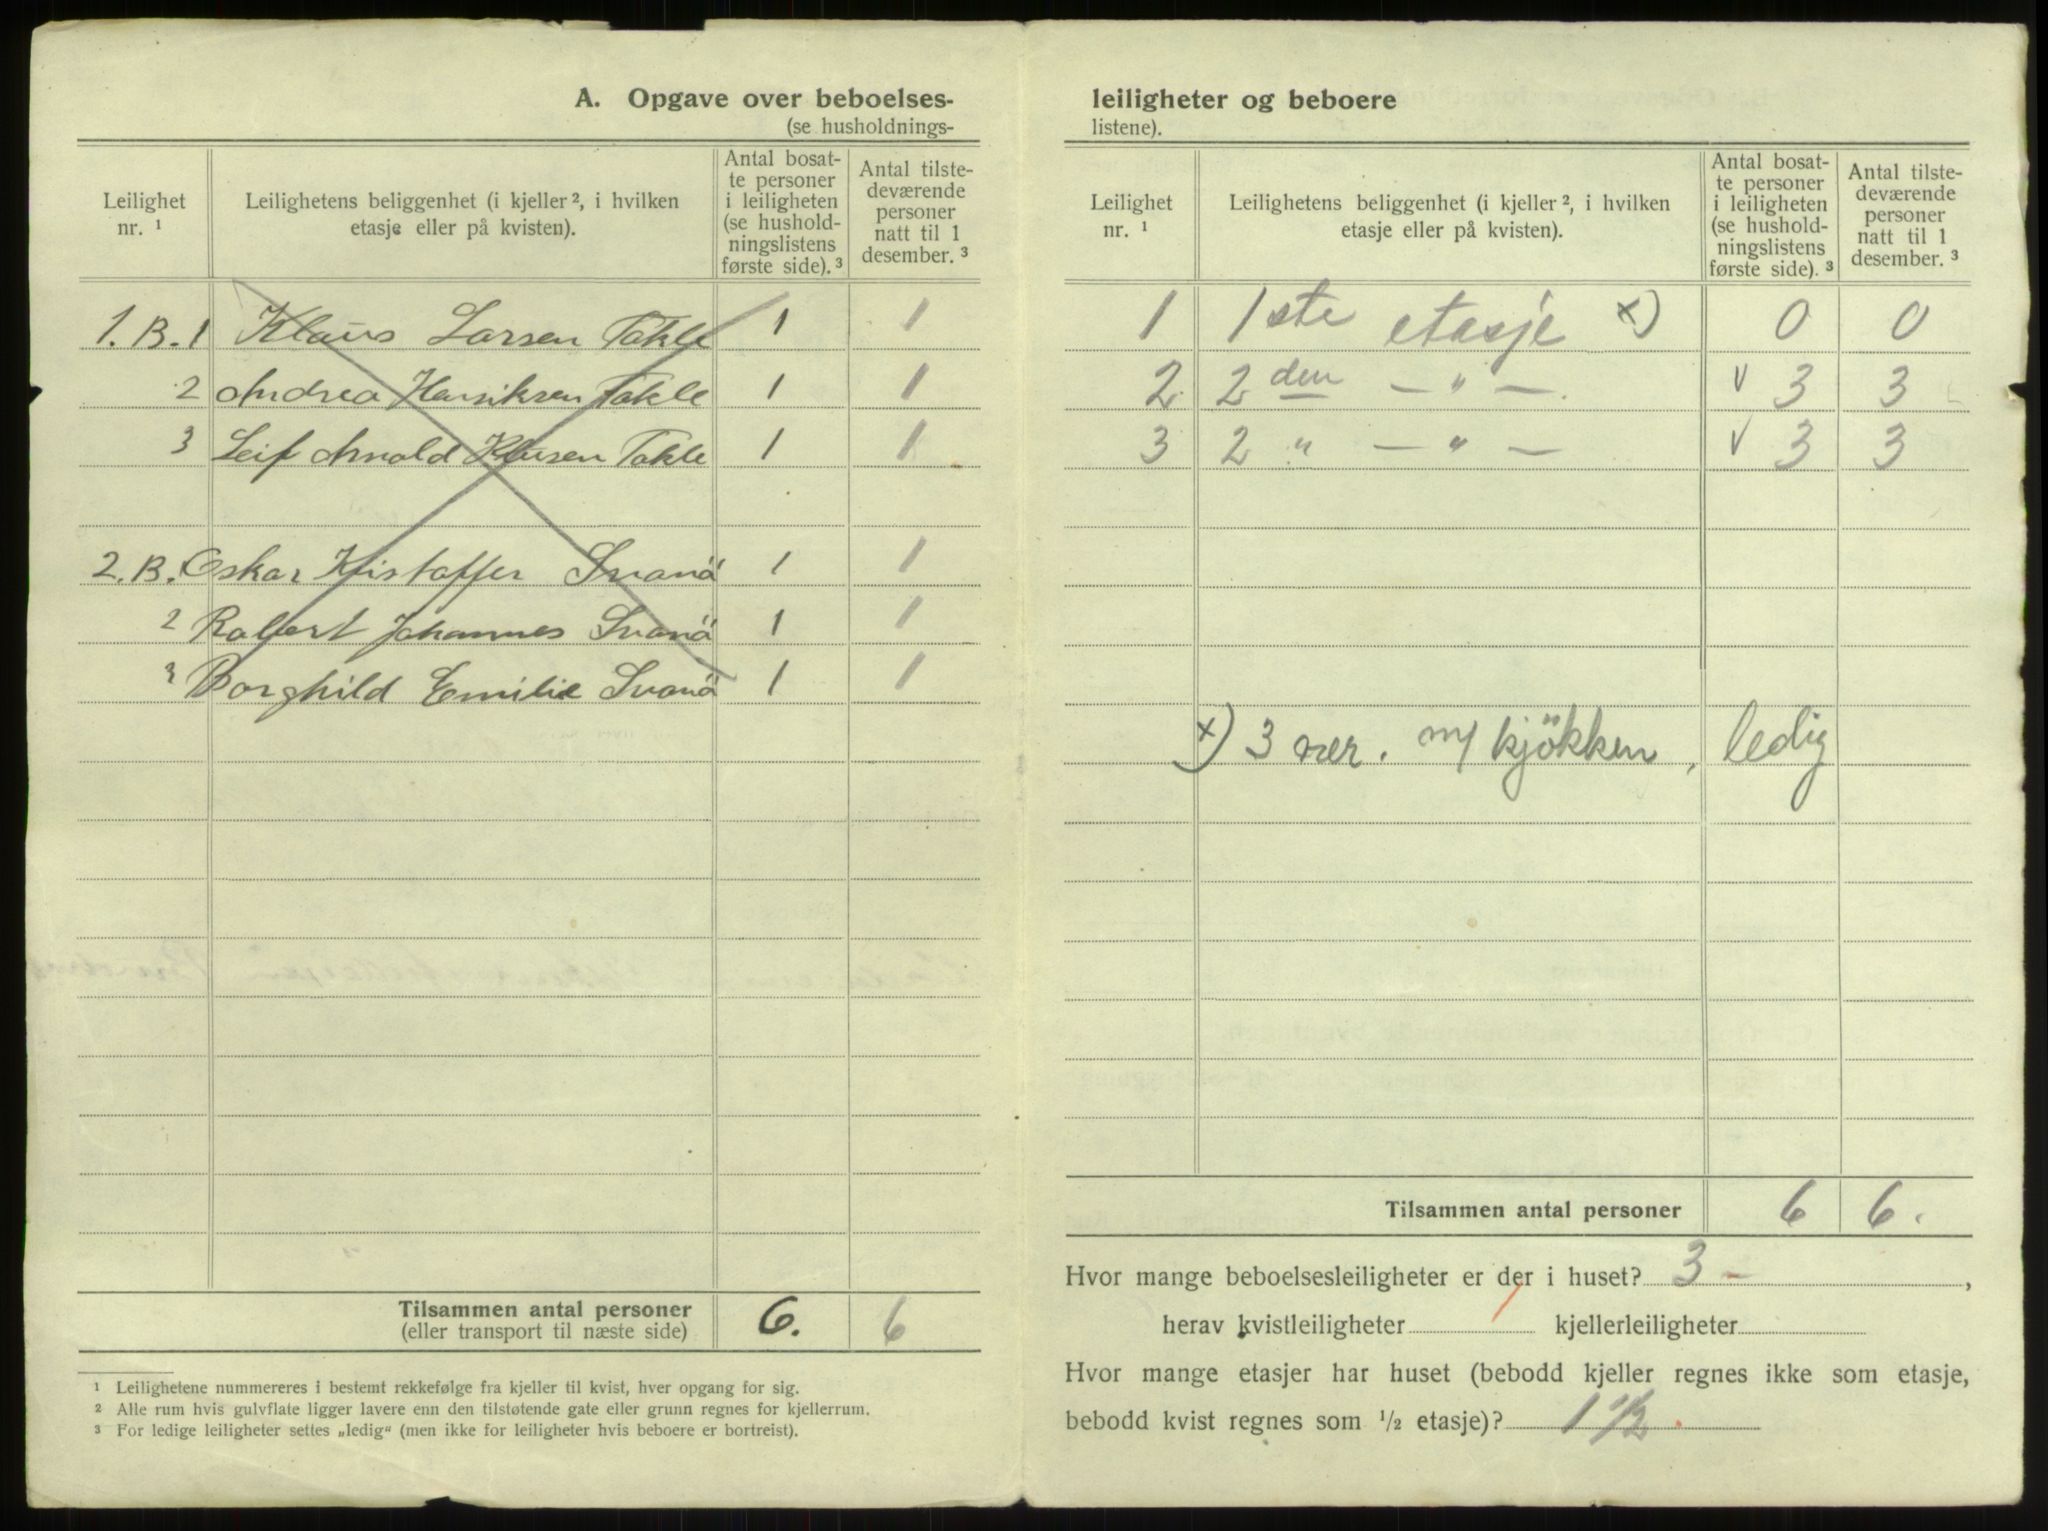 A. Opgave over beboelses-
(se husholdnings-
Leilighet nr. ¹
Leilighetens beliggenhet (i kjeller ², i hvilken etasje eller på kvisten).
Antal bosat-
te personer
i leiligheten
(se hushold-
ningslistens
første side). ³
Antal tilste-
deværende
personer
natt til 1
desember. ³
1. B. 1 Klaus Larsen Takle 1 1
2 Andrea Henriksen Takle 1 1
3 Leif Arnold Klausen Takle 1 1
2. B. Oskar Kristoffer Svanö 1 1
2 Robert Johannes Svanö 1 1
3 Borghild Emilie Svanö 1 1
Tilsammen antal personer 6. 6
(eller transport til næste side)
¹ Leilighetene nummereres i bestemt rekkefølge fra kjeller til kvist, hver opgang for sig.
² Alle rum hvis gulvflate ligger lavere enn den tilstøtende gate eller grunn regnes for kjellerrum.
³ For ledige leiligheter settes „ledig“ (men ikke for leiligheter hvis beboere er bortreist).
leiligheter og beboere
listene).
Leilighet nr. ¹
Leilighetens beliggenhet (i kjeller ², i hvilken etasje eller på kvisten).
Antal bosat-
te personer
i leiligheten
(se hushold-
ningslistens
første side). ³
Antal tilste-
deværende
personer
natt til 1
desember. ³
1 1ste etasje x) 0 0
2 2den — " — v 3 3
3 2 " — " — v 3 3
x) 3 vær. m/ kjökken, ledig
Tilsammen antal personer 6 6.
Hvor mange beboelsesleiligheter er der i huset? 3 -,
herav kvistleiligheter 1 kjellerleiligheter
Hvor mange etasjer har huset (bebodd kjeller regnes ikke som etasje,
bebodd kvist regnes som ½ etasje)? 1 ½.